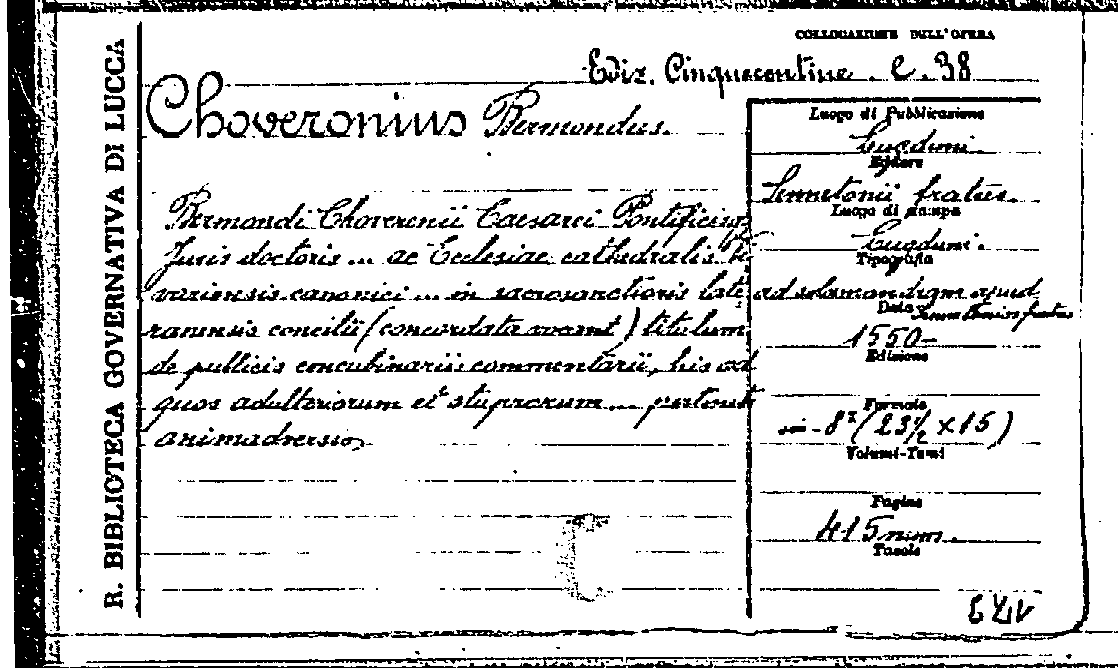 R. BIBLIOTECA GOVERNATIVA DI LUCCA
COLLOCAZIONE DELL'OPERA
Ediz. Cinquecentine. C. 38
Choveronius Bermondus.
Bermondi Choveronii Caesarei Pontificiiq
Juris doctoris ... ac Ecclesiae cathedralis
variensis canonici ... in sacrosanctioris late
ranensis concilii (concordata vocant) titulum
de publicis concubinariis commentarii, his ad
quos adulteriorum et stuprorum ... pertinet
animadversio,
Luogo di Pubblicazione
Lugduni.
Editore
Sennetonii fratres.
Luogo di stampa
Lugduni.
Tipografia
ad salamandram apud
Data Sennetonios fratres
1550-
Edizione
Formato
in-8° (23½ x 15)
Volumi-Tomi
Pagine
415 num.
Tavole